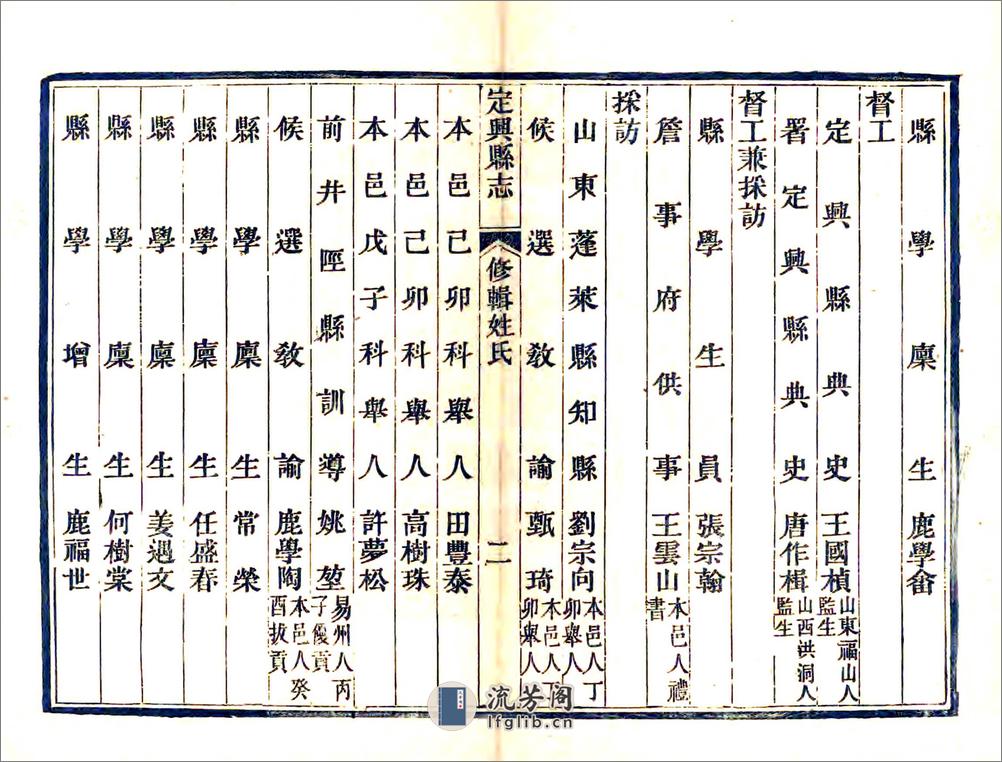 縣學廩生鹿學畬
督工
定興縣典史王國楨山東福山人監生
署定興縣典史唐作楫山西洪洞人監生
督工兼採訪
縣學生員張宗翰
詹事府供事王雲山本邑人禮書
採訪
山東蓬萊縣知縣劉宗向本邑人丁卯舉人
候選教諭甄琦本邑人丁卯舉人
定興縣志
修輯姓氏
二
本邑己卯科舉人田豐泰
本邑己卯科舉人高樹珠
本邑戊子科舉人許夢松
前井陘縣訓導姚堃易州人丙子優貢
候選教諭鹿學陶本邑人癸酉拔貢
縣學廩生常榮
縣學廩生任盛春
縣學廩生姜遇文
縣學廩生何樹棠
縣學增生鹿福世
流芳阁
lfglib.cn